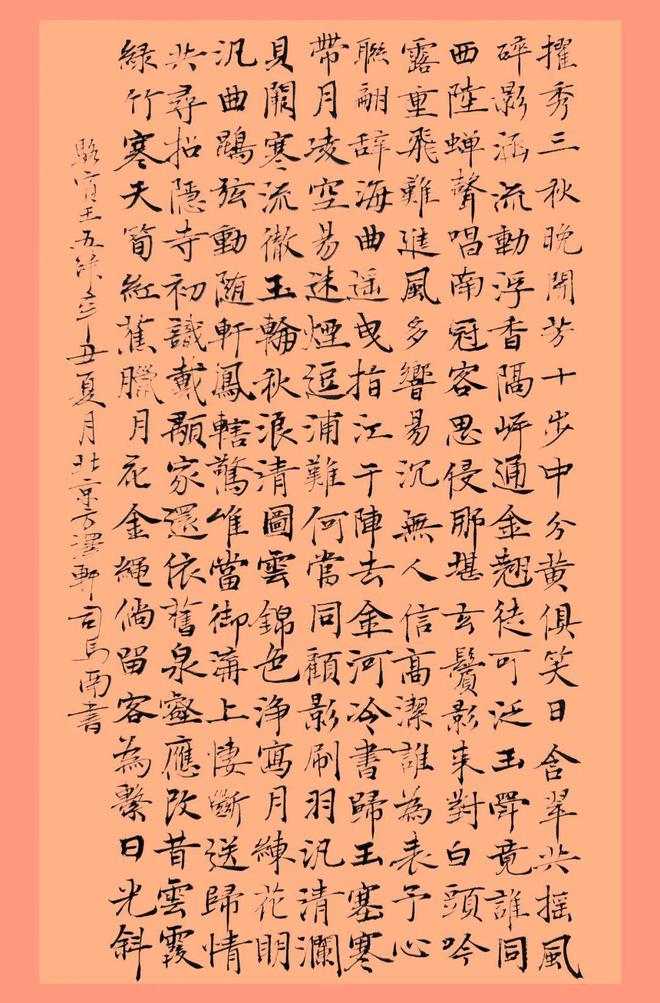 擢秀三秋晚開芳十步中分黃俱笑日含翠共搖風
碎影涵流動浮香隔岸通金翹徒可泛玉斝竟誰同
西陸蟬聲唱南冠客思侵那堪玄鬢影来對白頭吟
露重飛難進風多響易沉無人信高潔誰為表予心
聯翩辞海曲遥曳指江干陣去金河冷書歸玉塞寒
帶月凌空易迷煙逗浦難何當同顧影刷羽汎清瀾
貝闕寒流徹玉輪秋浪清圖雲錦色淨寫月練花明
汎曲鵾弦動随軒鳳轄驚唯當御溝上悽斷送歸情
共尋招隱寺初識戴顒家還依舊泉壑應改昔雲霞
綠竹寒天筍紅蕉臘月花金繩倘留客為繫日光斜
駱賓王五律辛丑夏月北京方澤軒司馬南書